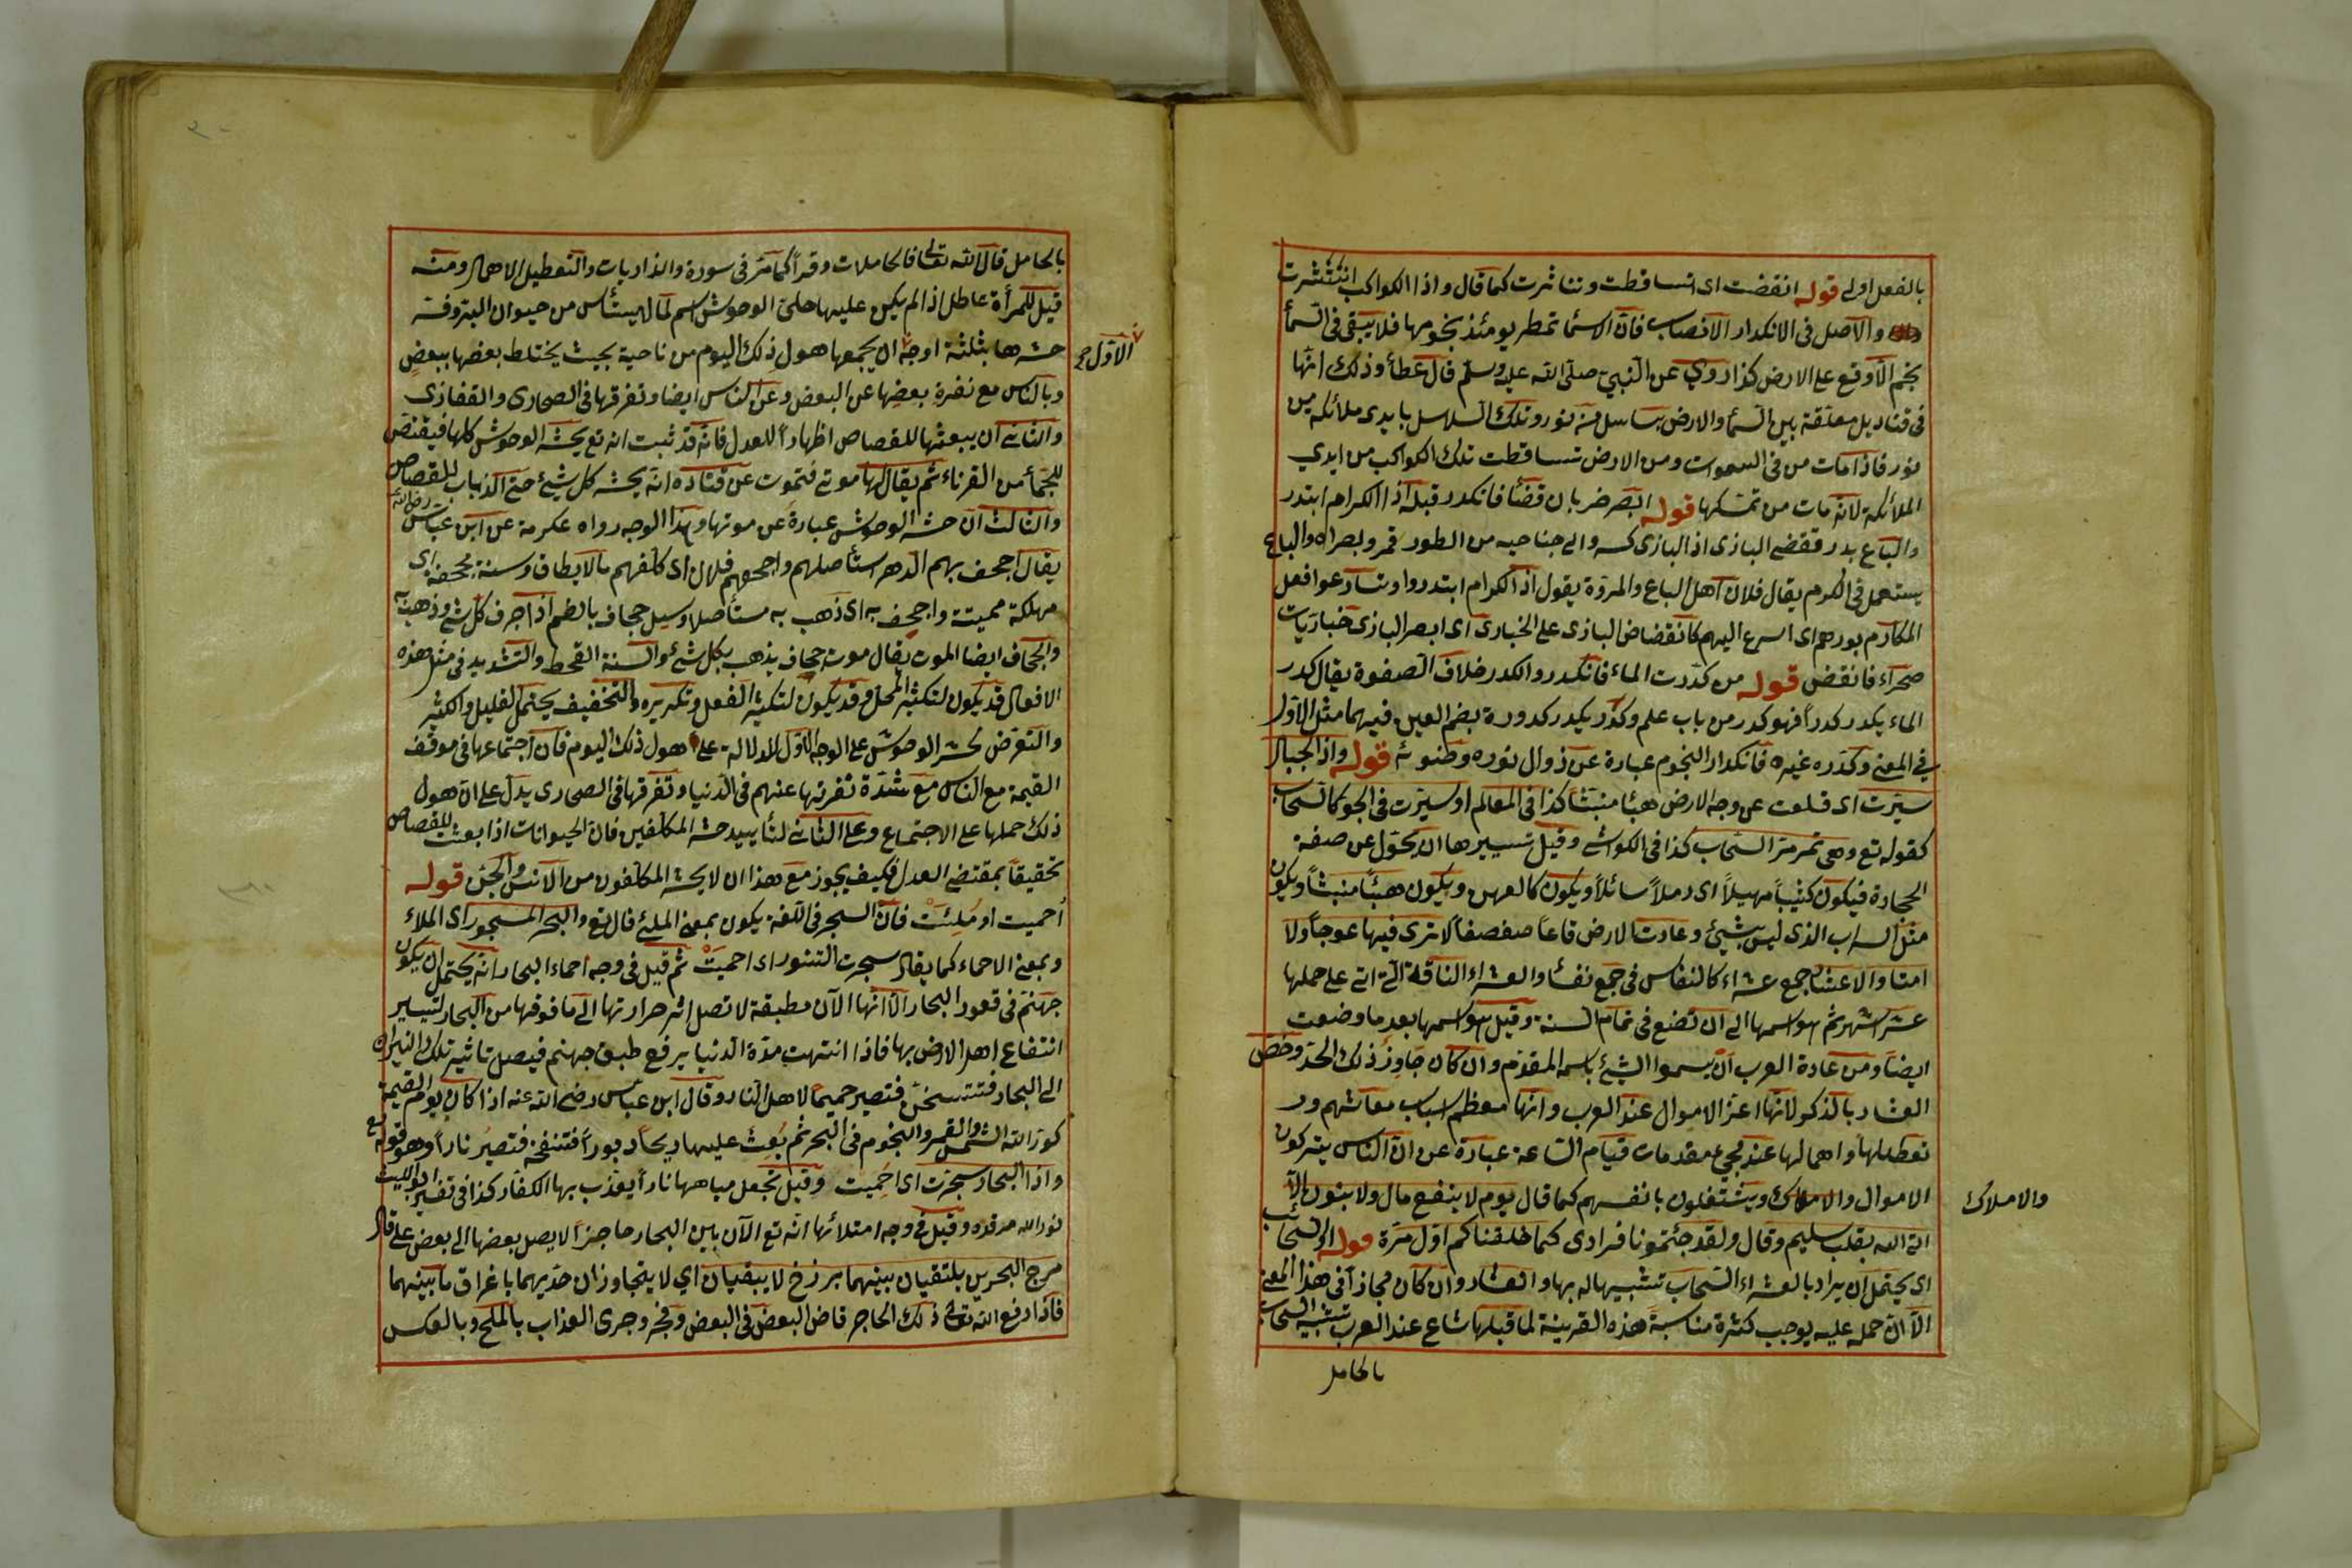 بالفعل اولى قوله انقضت اى تساقطت وتناثرت كما قال واذا الكواكب انتثرت
والاصل فى الانكدار الانصباب فانّ السّماء تمطر يومئذ نجومها فلا يبقى فى السّماء
نجم الّا وقع على الارض كذا روي عن النّبيّ صلّى الله عليه وسلّم قال عطاء وذلك انّها
فى قناديل معلّقة بين السّماء والارض بسلاسل من نور وتلك السّلاسل بايدى ملائكة من
نور فاذا مات من فى السموات ومن الارض تساقطت تلك الكواكب من ايدي
الملائكة لانه مات من تمسّكها قوله ابصر خربان فضاء فانكدر قبله اذا الكرام ابتدر
والباع بدر تقضى البازى اذا البازى كسر والى جناحيه من الطور فمر وبصراه والباع
يستعمل فى الكرم يقال فلان اهل الباع والمروّة يقول اذا الكرام ابتدروا وتسارعوا فعل
المكارم بدرهم اى اسرع اليهم كانقضاض البازى على الحبارى اى ابصر البازى حباريات
صحراء فانقض قوله من كدّرت الماء فانكدر والكدر خلاف الصفوة يقال كدر
الماء يكدر كدراً فهو كدر من باب علم وكدر يكدر كدورة بضم العين فيهما مثل الاوّل
في المعنى وكدّره غيره فانكدار النجوم عبارة عن زوال نوره وضوئه قوله واذا الجبال
سيّرت اى قلعت عن وجه الارض هباء منبثّا كذا فى المعالم او سيّرت فى الجوّ كالسّحاب
كقوله تع وهى تمر مرّ السّحاب كذا فى الكواشى وقيل تسييرها ان يحوّل عن صفة
الحجارة فيكون كثيباً مهيلاً اى رملاً سائلاً ويكون كالعهن ويكون هباء منبثاً ويكون
مثل السراب الذى ليس بشيئ وعادت الارض قاعاً صفصفاً لا ترى فيها عوجاً ولا
امتا والعشار جمع عشراء كالنفاس فى جمع نفساء والعشراء الناقة التى اتى على حملها
عشر اشهر ثم هو اسمها الى ان تضع فى تمام السنة وقيل هو اسمها بعد ما وضعت
ايضاً ومن عادة العرب ان يسموا الشيئ باسمه المقدّم وان كان جاوز ذلك الحدّ وخصّ
العشار بالذكر لانها اعزّ الاموال عند العرب وانها معظم اسباب معاشهم ور
تعطيلها واهمالها عند مجيئ مقدمات قيام السّاعة عبارة عن انّ الناس يتركون
الاموال والاملاك ويشتغلون بانفسهم كما قال يوم لا ينفع مال ولا بنون الّا
والاملاك
اتى الله بقلب سليم وقال ولقد جئتمونا فرادى كما خلقناكم اوّل مرّة قوله او السّحائب
اى يحتمل ان يراد بالعشراء السّحاب تشبيها له بها والعشار وان كان مجازاً فى هذا المعنى
الّا انّ حمله عليه يوجب كثرة مناسبة هذه القرينة لما قبلها شاع عند العرب تشبيه السّحاب
بالحامل
بالحامل قال الله تعالى فالحاملات وقراً كما مرّ فى سورة والذاريات والتعطيل الاهمال ومنه
قيل للمرأة عاطل اذا لم يكن عليها حلى الوحوش اسم لما لا يستأنس من حيوان البرّ وفى
حشرها بثلثة اوجه ان يجمعها هول ذلك اليوم من ناحية بحيث يختلط بعضها ببعض
الاوّل
وبالنّاس مع نفرة بعضها عن البعض وعن النّاس ايضا وتفرّقها فى الصحارى والقفازى
والثانى ان يبعثها للقصاص اظهاراً للعدل فانّه قد ثبت انه تع يحشر الوحوش كلها فيقتصّ
للجمّاء من القرناء ثم يقال لها موتى فتموت عن قتادة انّه يحشر كل شيئ حتى الذباب للقصاص
والثالث انّ حشر الوحوش عبارة عن موتها وهذا الوجه رواه عكرمة عن ابن عبّاس رضى الله
يقال اجحف بهم الدهر استأصلهم واجحفهم فلان اى كلّفهم ما لا يطاق وسنة مجحفة اى
مهلكة مميتة واجحف به اى ذهب به مستأصلا وسيل جحاف بالضم اذا جرف كل شئ وذهب به
والجحاف ايضا الموت يقال موت جحاف يذهب بكل شئ والسنة القحط والتشديد فى مثل هذه
الافعال قد يكون لتكثير المحلّ وقد يكون لتكثير الفعل وتكريره والتخفيف يحتمل القليل والكثير
والتعرّض لحشر الوحوش على الوجه الاوّل للدلالة على هول ذلك اليوم فانّ اجتماعها فى موقف
القيمة مع النّاس مع شدّة نفرتها عنهم فى الدّنيا وتفرّقها فى الصحارى يدلّ على انّ هول
ذلك حملها على الاجتماع وعلى الثانى لتأييد حشر المكلّفين فانّ الحيوانات اذا بعثت للقصاص
تحقيقاً بمقتضى العدل فكيف يجوز مع هذا ان لا يحشر المكلّفون من الانس والجنّ قوله
أحميت او مُلِئَتْ فانّ السجر فى اللّغة يكون بمعنى الملئ قال تع والبحر المسجور اى الملاء
وبمعنى الاحماء كما يقال سجرت التنور اى احميت ثم قيل فى وجه احماء البحار انّه يحتمل ان يكون
جهنّم فى قعود البحار الّا انّها الآن مطبقة لا تصل اثر حرارتها الى ما فوقها من البحار لتيسير
انتفاع اهل الارض بها فاذا انتهت مدّة الدّنيا يرفع طبق جهنم فيصل تاثير تلك النيران
الى البحار فتتسخّن فتصير حميما لاهل النّار وقال ابن عبّاس رضى الله عنه اذا كان يوم القيمة
كوّر الله الشّمس والقمر والنجوم فى البحر ثم بُعِث عليها ريحاً دبوراً فتنفخه فتصير ناراً وهو قوله تع
واذا البحار سجّرت اى احميت وقيل تجعل مياهها ناراً يعذّب بها الكفار كذا فى تفسير ابو الليث
نور الله مرقده وقيل فى وجه امتلائها انّه تع الآن بين البحار حاجزاً لا يصل بعضها الى بعض على قال
مرج البحرين يلتقيان بينهما برزخ لا يبغيان اي لا يتجاوزان حدّيهما باغراق ما بينهما
فاذا رفع الله تع ذلك الحاجز فاض البعض فى البعض وفجر وجرى العذاب بالملح وبالعكس